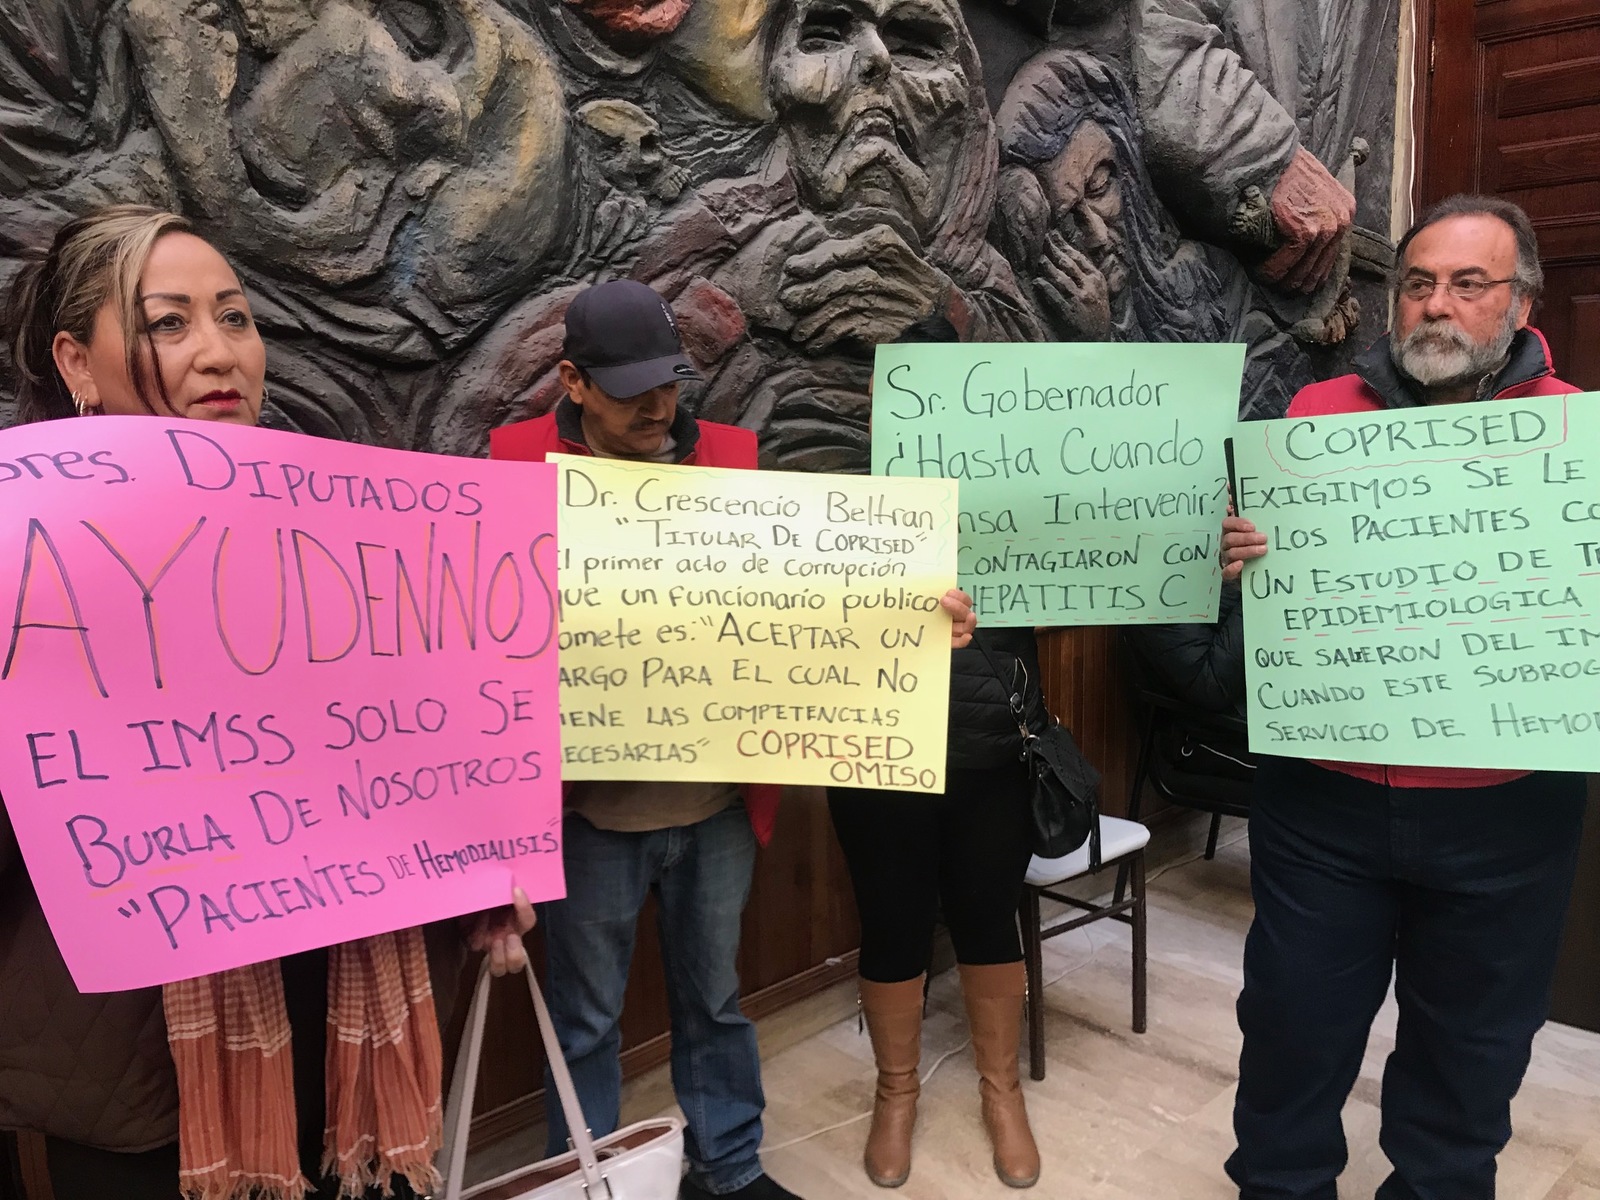 DIPUTADOS
AYUDENNOS
EL IMSS SOLO SE
BURLA DE NOSOTROS
"PACIENTES DE HEMODIALISIS"
Dr. Crescencio Beltran
"TITULAR DE COPRISED"
El primer acto de corrupción
que un funcionario publico
comete es: "ACEPTAR UN
CARGO PARA EL CUAL NO
TIENE LAS COMPETENCIAS
NECESARIAS" COPRISED
OMISO
Sr. Gobernador
¿Hasta Cuando
Intervenir?
CONTAGIARON CON
HEPATITIS C
COPRISED
EXIGIMOS SE LE
LOS PACIENTES
UN ESTUDIO DE
EPIDEMIOLOGICA
QUE SALIERON DEL
CUANDO ESTE
SERVICIO DE